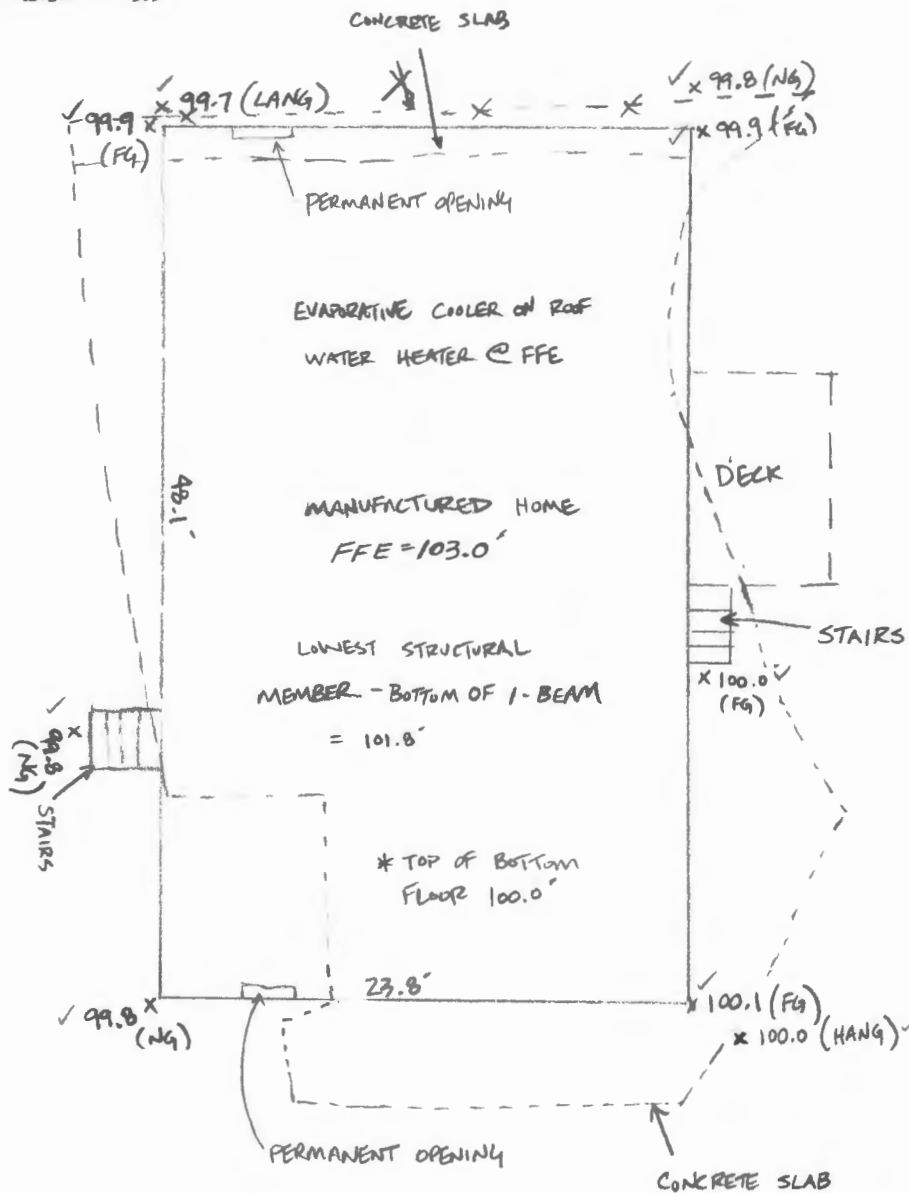 CONCRETE SLAB
✓ 99.7 (LANG)
✓ 99.8 (NG)
✓ 99.9 (FG)
✓ 99.9 (FG)
PERMANENT OPENING
EVAPORATIVE COOLER ON ROOF
WATER HEATER @ FFE
48.1'
MANUFACTURED HOME
FFE = 103.0'
DECK
LOWEST STRUCTURAL
MEMBER - BOTTOM OF I-BEAM
= 101.8'
STAIRS
100.0 ✓
(FG)
✓ 99.8
(NG)
STAIRS
* TOP OF BOTTOM
FLOOR 100.0'
23.8'
✓ 99.8
(NG)
✓ 100.1 (FG)
100.0 (HANG) ✓
PERMANENT OPENING
CONCRETE SLAB